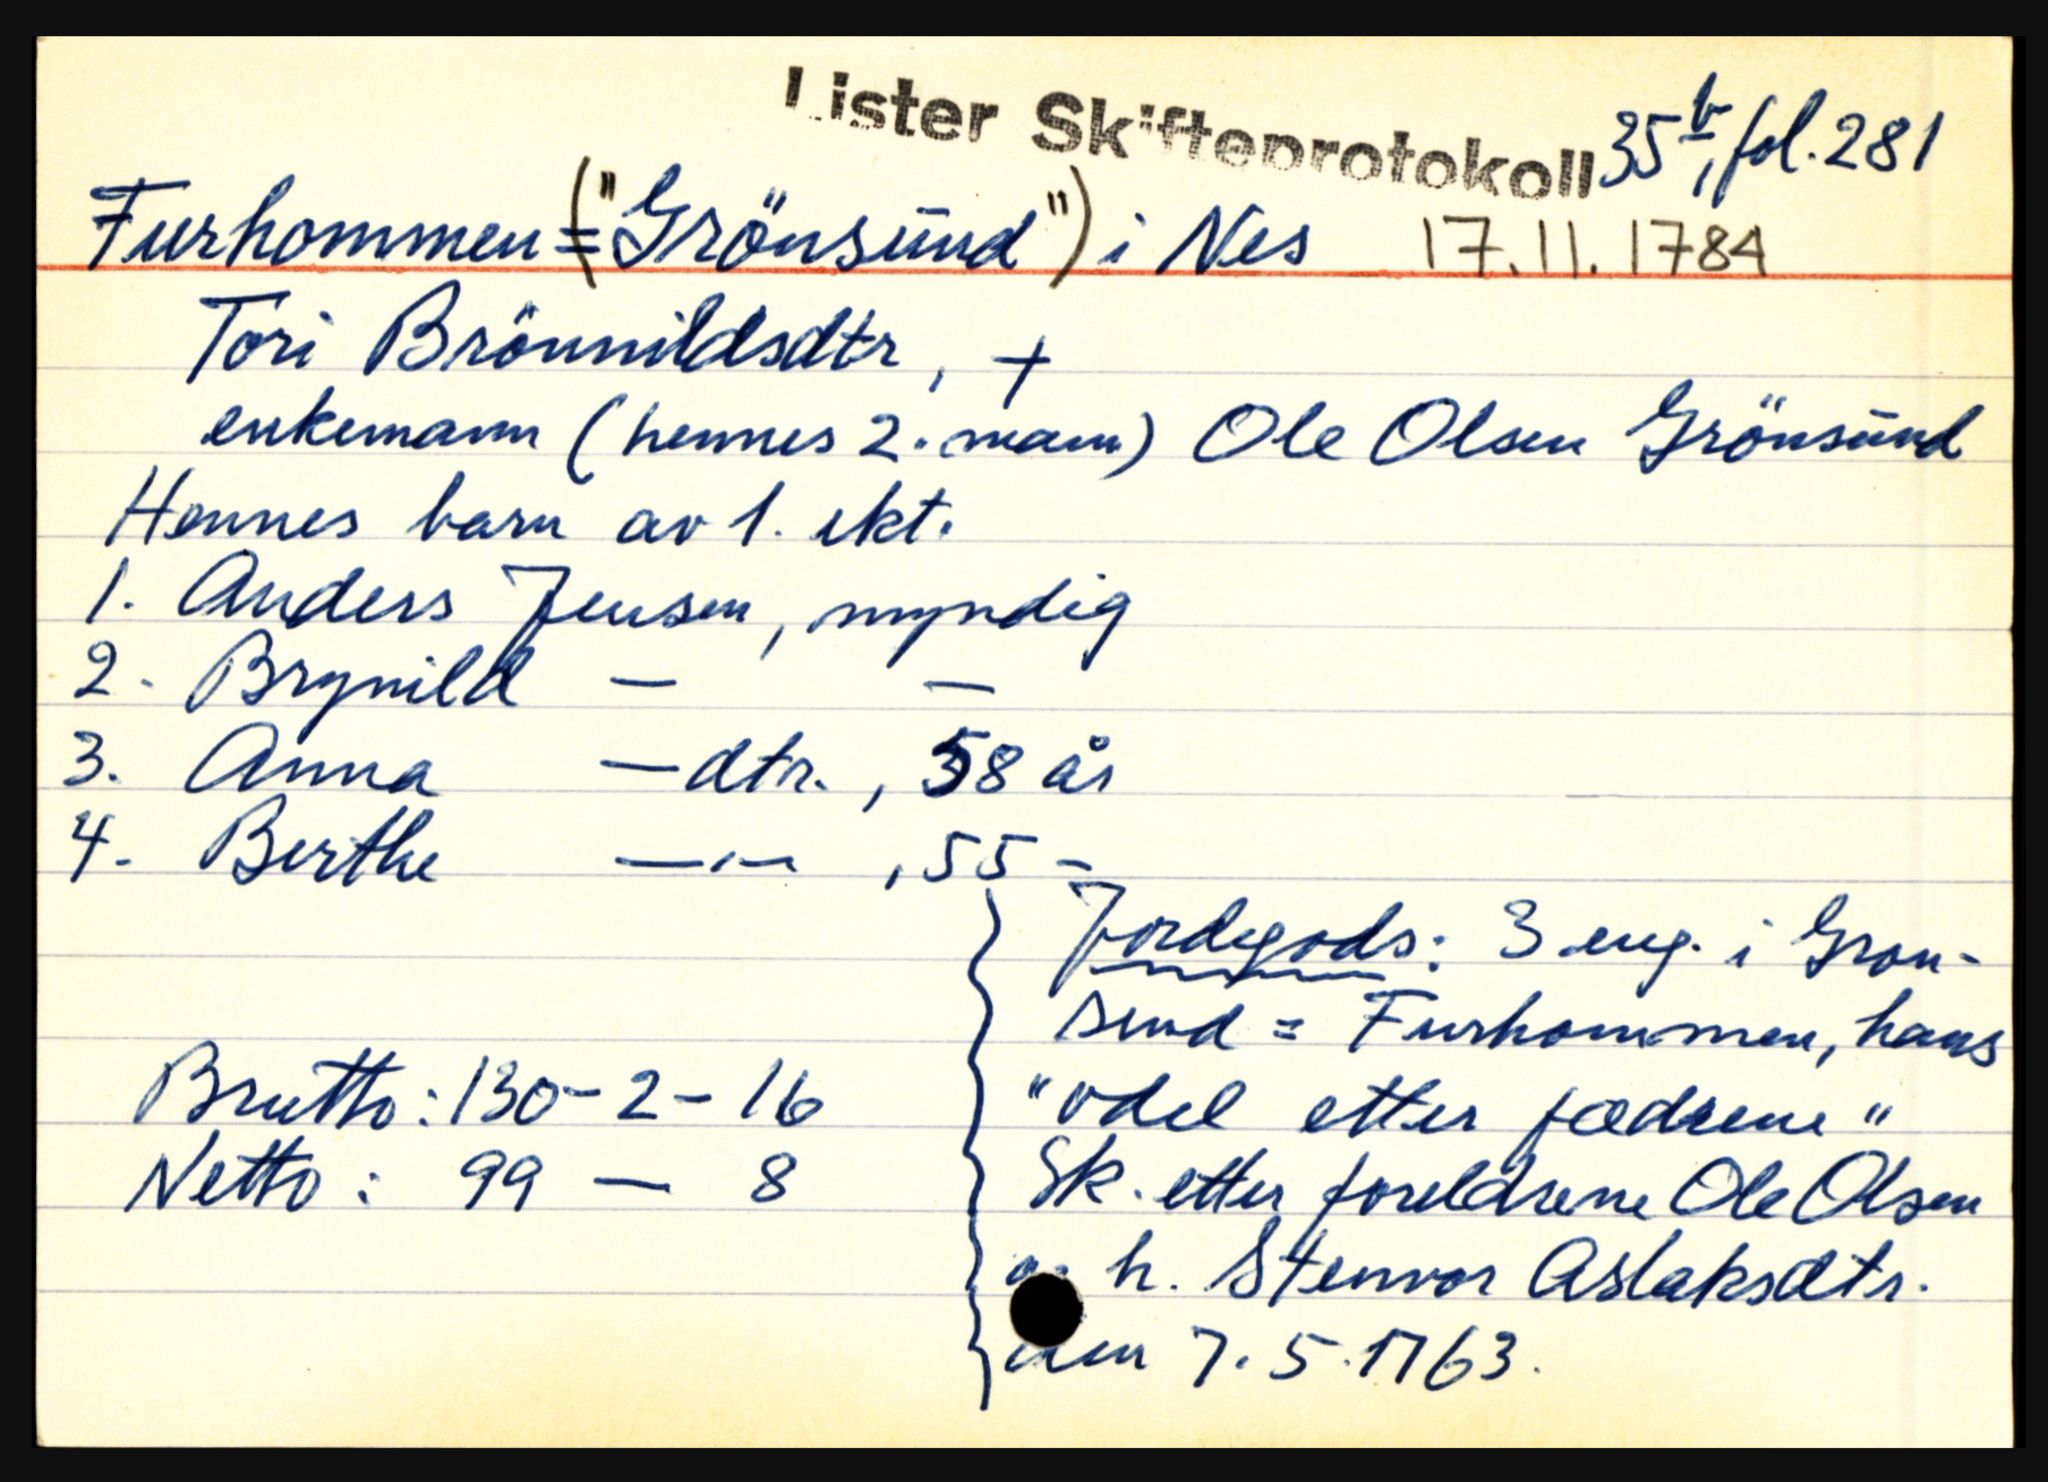 Lister Skifteprotokoll 35b, fol. 281
Furhommen (= "Grönsund") i Nes 17.11.1784
Tori Brönnildsdtr, +
enkemann (hennes 2. mann) Ole Olsen Grönsund
Hennes barn av 1. ekt.
1. Anders Jensen, myndig
2. Brynild — —
3. Anna — dtr., 58 år
4. Berthe — " — , 55 -
Jordegods: 3 eng. i Gron-
sund = Furhommen, hans
"odel etter fædrene"
Sk. etter foreldrene Ole Olsen
h. Stenvor Aslaksdtr.
7.5.1763.
Brutto: 130 - 2 - 16
Netto: 99 — 8